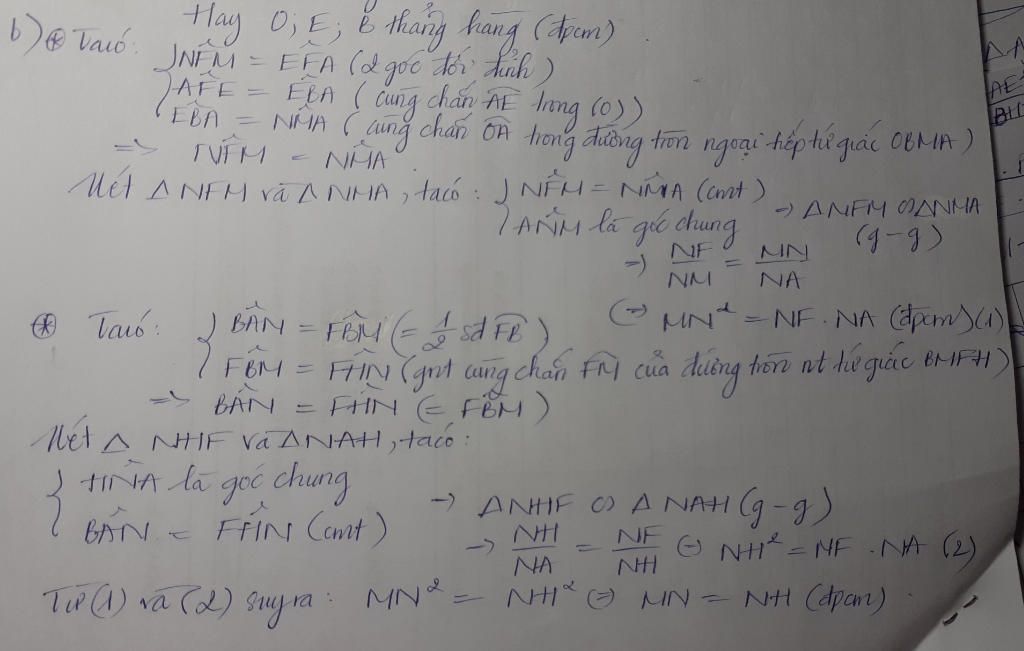 Hay O; E; B thẳng hàng (đpcm).
b) ⊛ Ta có:
{ NF̂M = EF̂A (2 góc đối đỉnh)
AF̂E = EB̂A (cùng chắn AE trong (O))
EB̂A = NM̂A (cùng chắn OA trong đường tròn ngoại tiếp tứ giác OBMA)
=> NF̂M = NM̂A
Xét △ NFM và △ NMA, ta có: { NF̂M = NM̂A (cmt)
AN̂M là góc chung
→ △NFM ∽ △NMA (g-g)
=> NF/NM = MN/NA
(=) MN² = NF . NA (đpcm) (1)
⊛ Ta có: { BÂN = FB̂M (= 1/2 sđ FB)
FB̂M = FĤN (gnt cùng chắn FM của đường tròn nt tứ giác BMFH)
=> BÂN = FĤN (= FB̂M)
Xét △ NHF và △NAH, ta có:
{ HN̂A là góc chung
BÂN = FĤN (cmt)
→ △NHF ∽ △NAH (g-g)
→ NH/NA = NF/NH (=) NH² = NF . NA (2)
Từ (1) và (2) suy ra: MN² = NH² (=) MN = NH (đpcm).